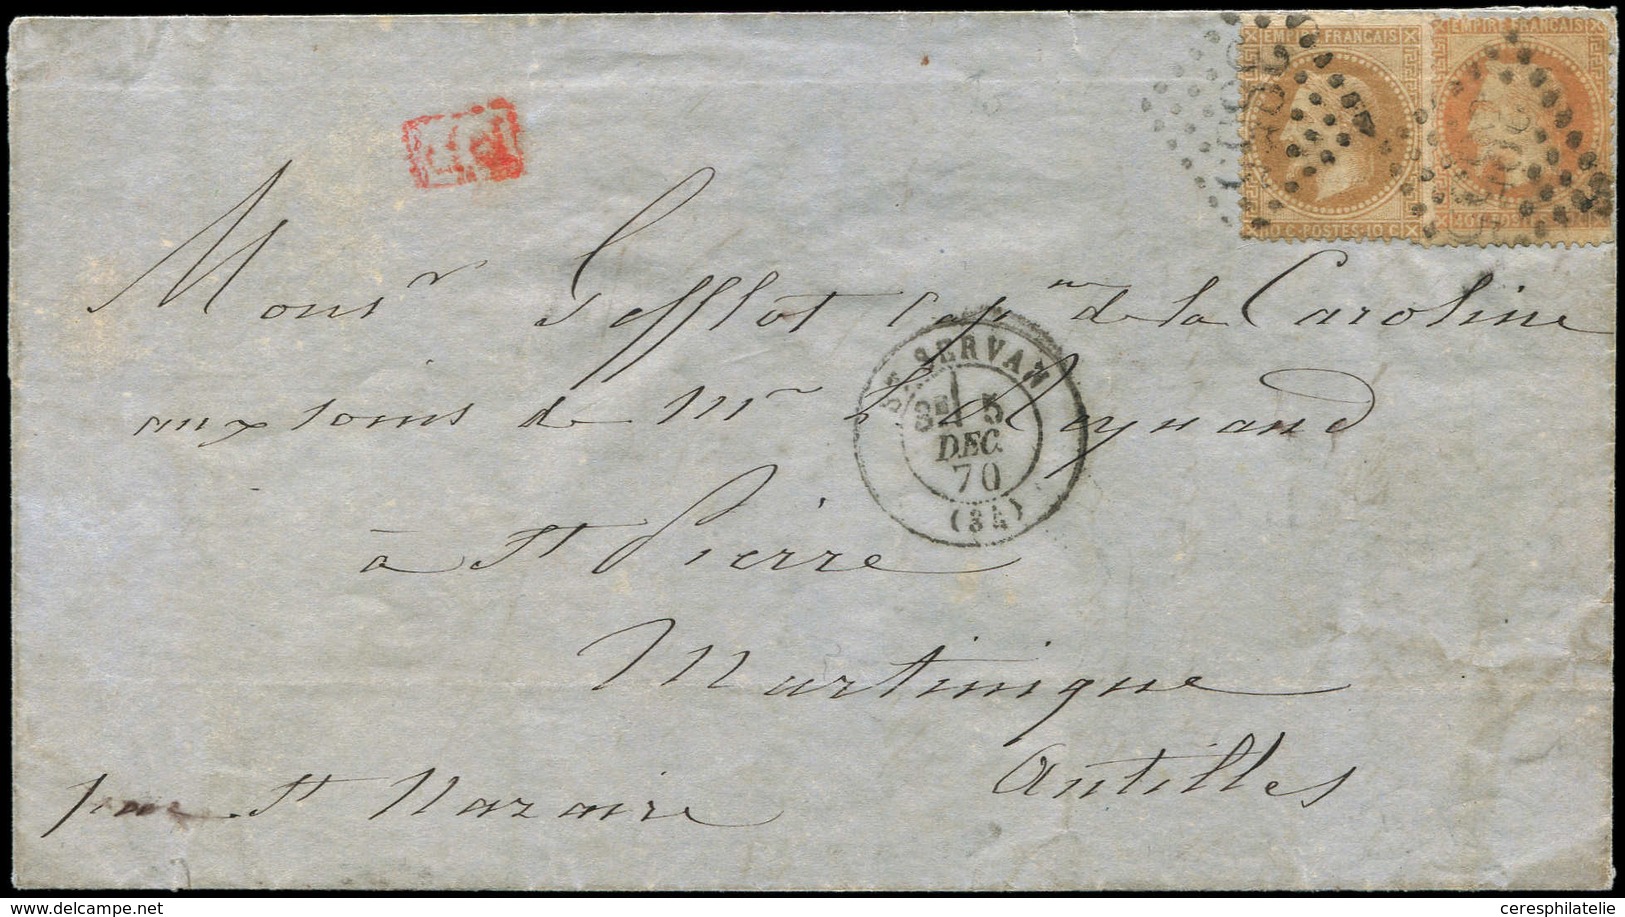 EMPIRE FRANÇAIS
10 C · POSTES · 10 C
EMPIRE FRANÇAIS
PP
Monsr Gefflot Capne de la Caroline
aux soins de Mr L. Reynand
à St Pierre
Martinique
Antilles
par St Nazaire
ST SERVAN
5
DEC.
70
(34)
ceresphilatelie